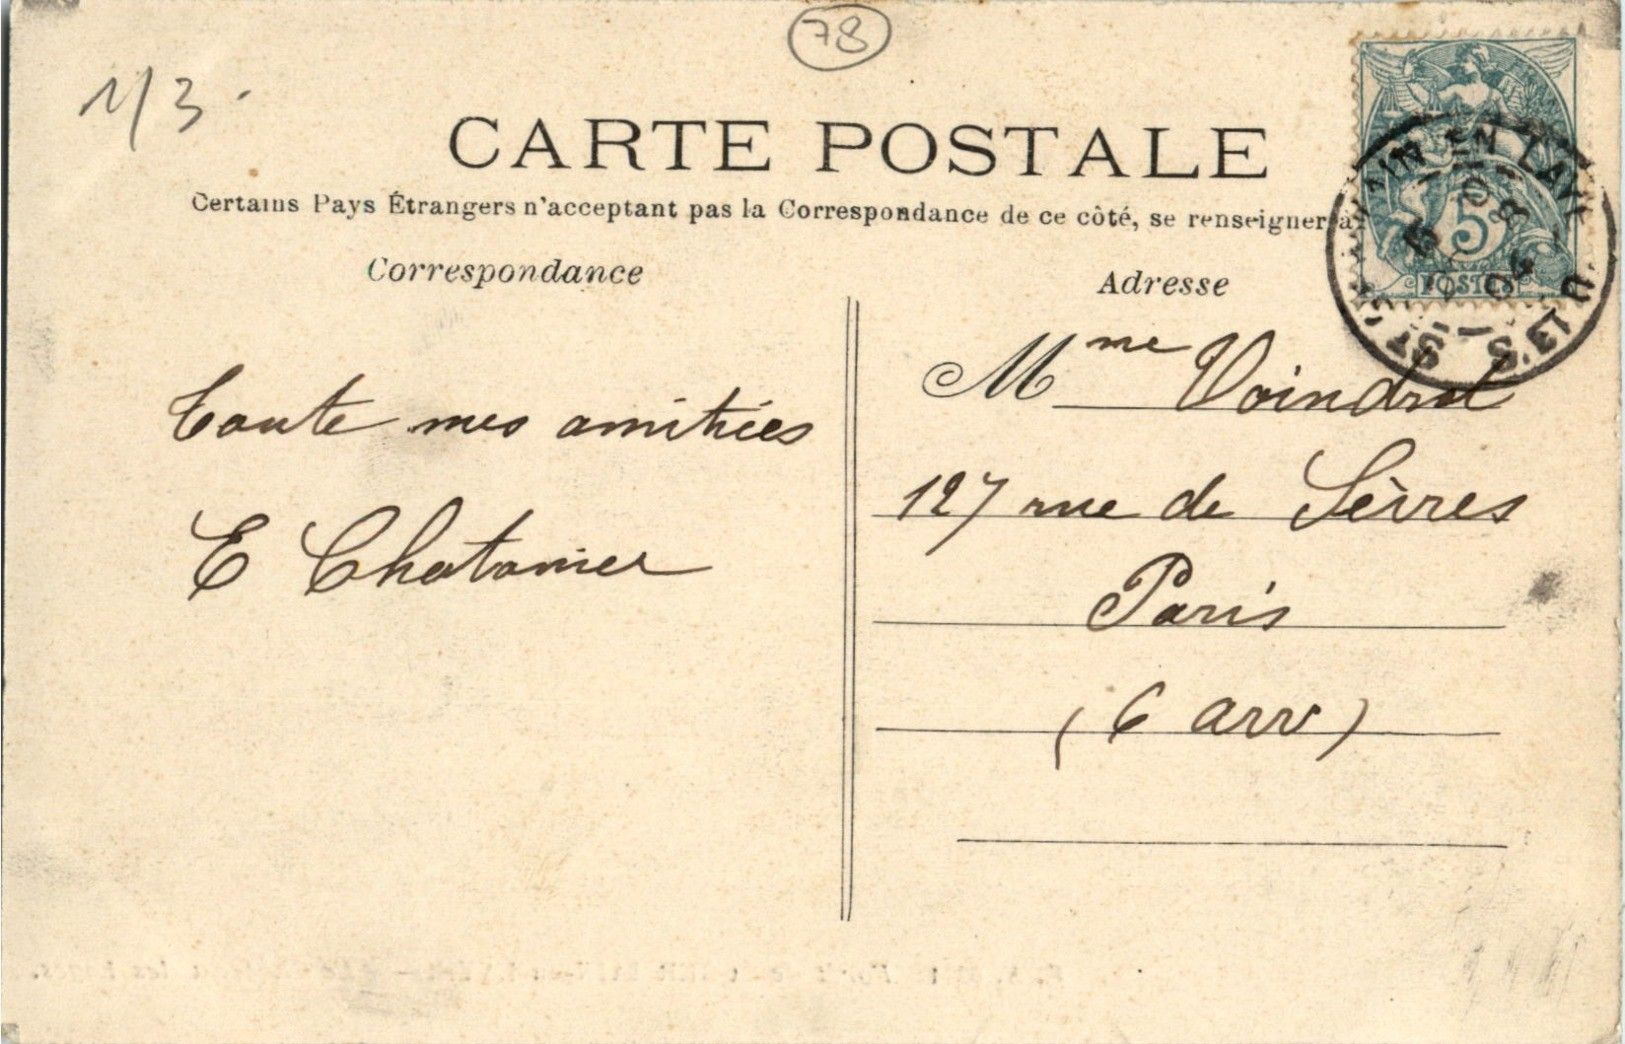 1/3.
78
CARTE POSTALE
Certains Pays Étrangers n'acceptant pas la Correspondance de ce côté, se renseigner à
Correspondance
Adresse
5c
POSTES
ST GERMAIN EN LAYE
S. ET O.
Toute mes amitiées
E Chatonier
Mme Voindrot
127 rue de Sèvres
Paris
(6 arr)